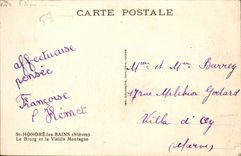 CARTE POSTALE
affectueuse
pensée
Françoise
Hémet
Mme et Mr Barrey
17 rue Melchior Godard
Villa d'Ay
(Marne)
St-HONORÉ-les-BAINS (Nièvre)
Le Bourg et la Vieille Montagne